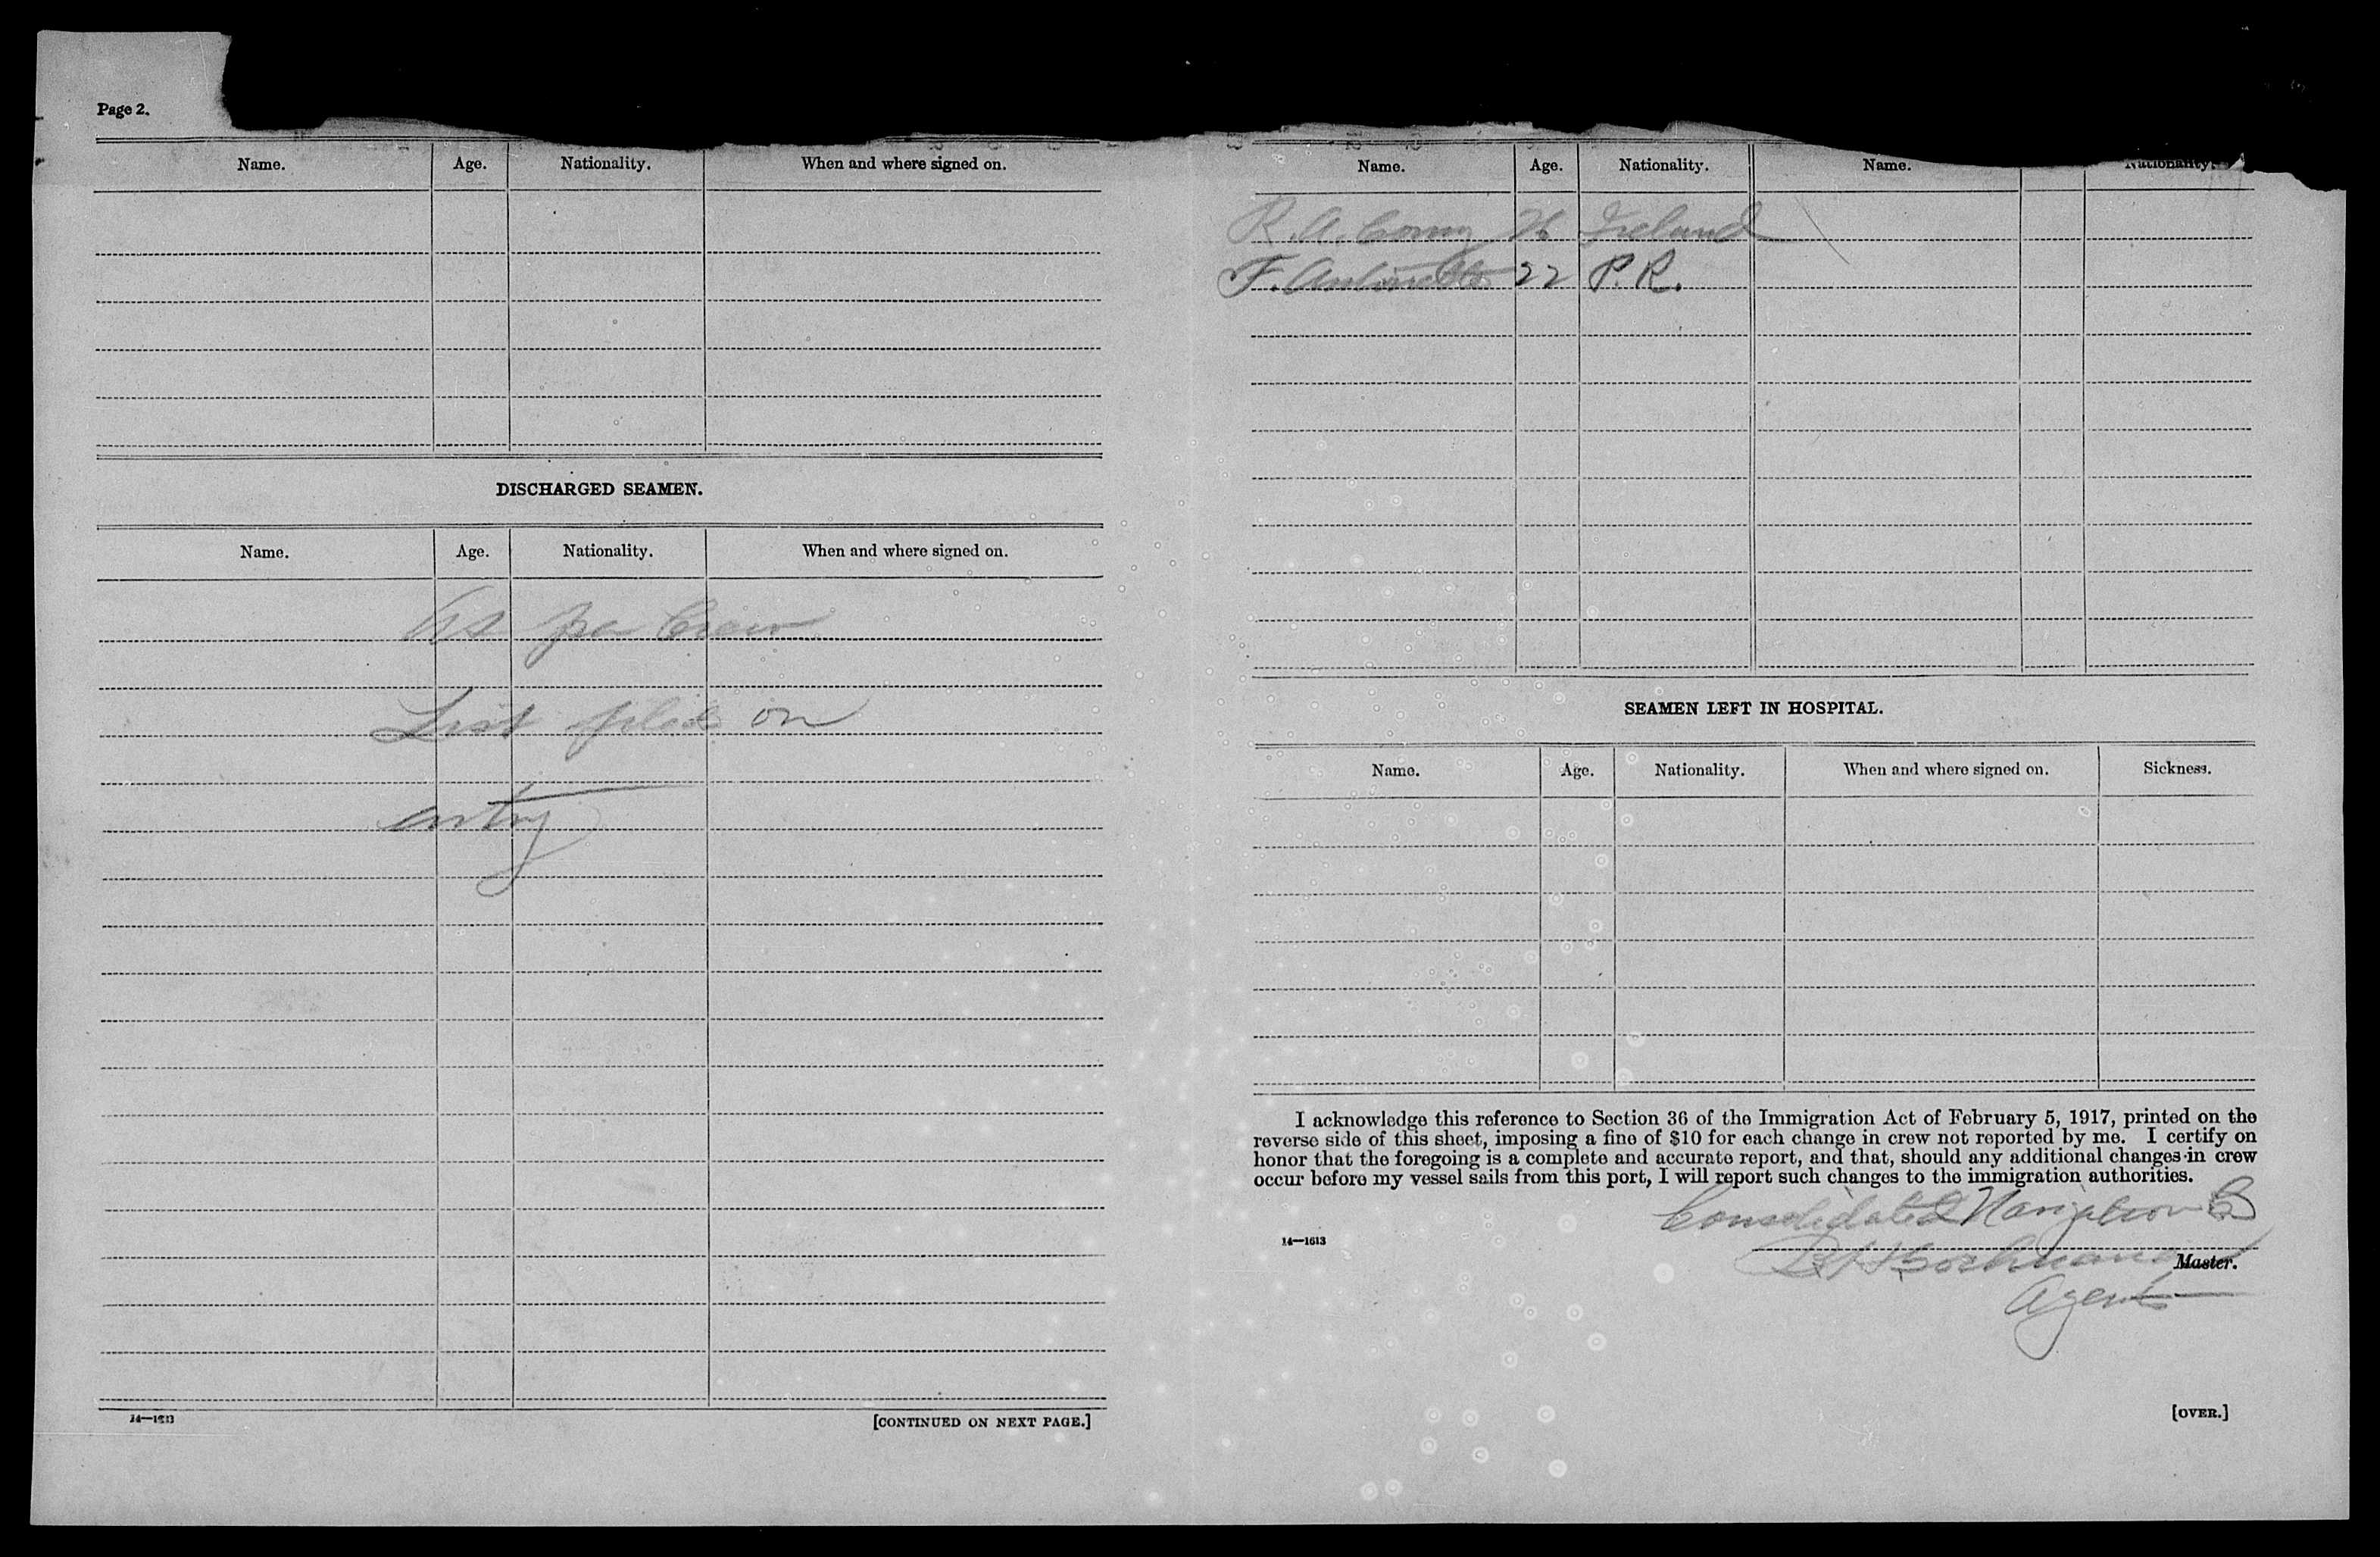 Page 2.
Name. Age. Nationality. When and where signed on.
DISCHARGED SEAMEN.
Name. Age. Nationality. When and where signed on.
As per Crew
List filed on
entry
14—1613
[CONTINUED ON NEXT PAGE.]
Name. Age. Nationality. Name. Nationality.
R. A. 26 Ireland
F. 22 P. R.
SEAMEN LEFT IN HOSPITAL.
Name. Age. Nationality. When and where signed on. Sickness.
I acknowledge this reference to Section 36 of the Immigration Act of February 5, 1917, printed on the
reverse side of this sheet, imposing a fine of $10 for each change in crew not reported by me. I certify on
honor that the foregoing is a complete and accurate report, and that, should any additional changes in crew
occur before my vessel sails from this port, I will report such changes to the immigration authorities.
Consolidated Navigation Co
14—1613
Master.
Agent
[OVER.]